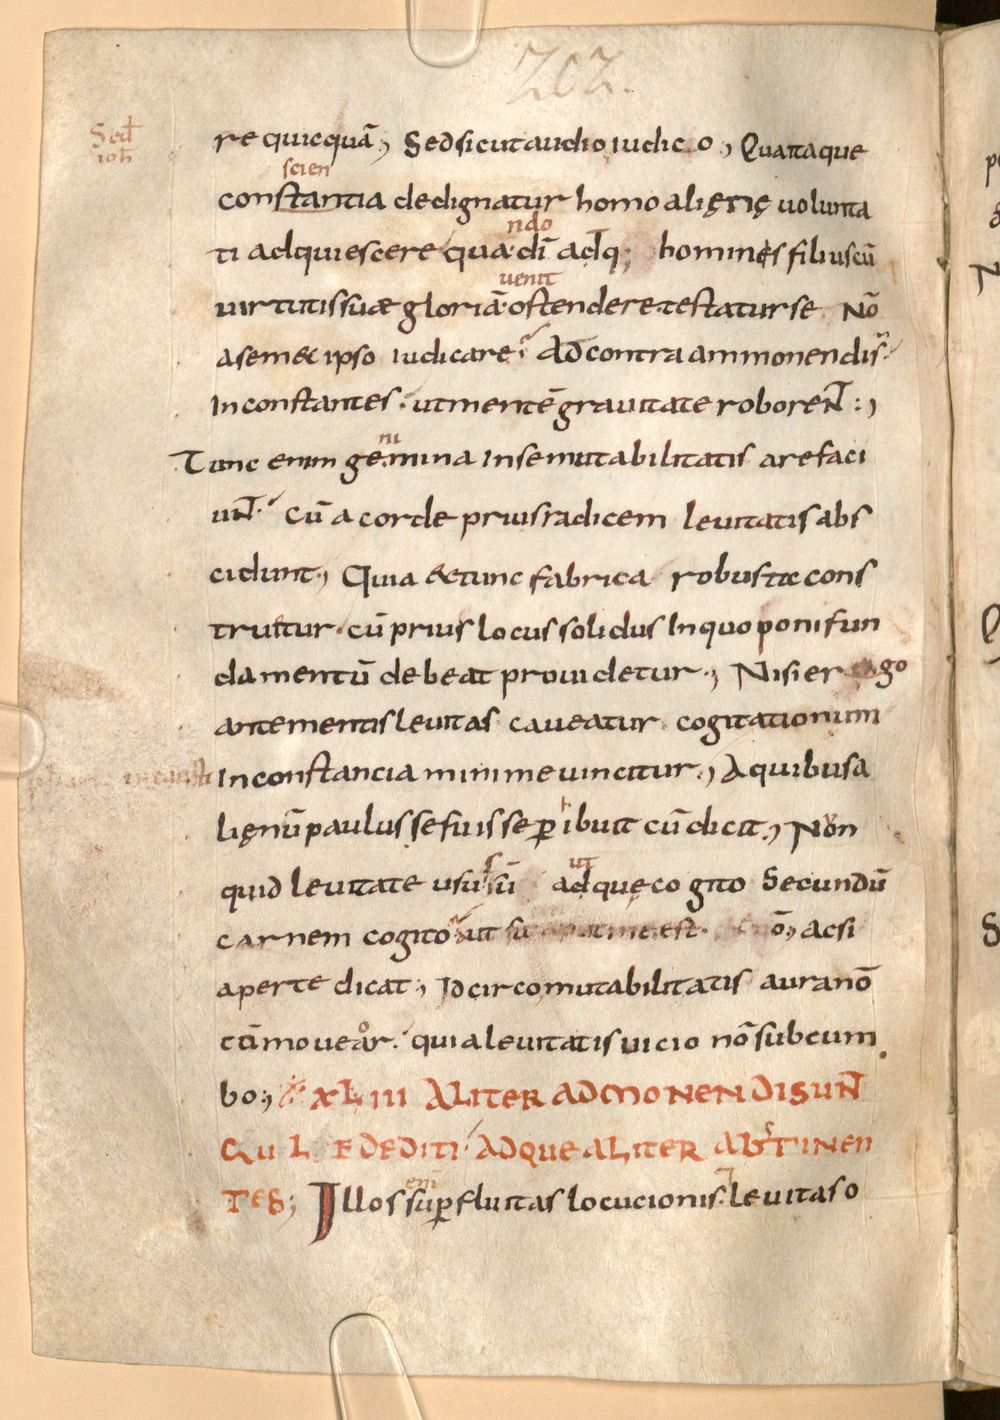 202.
Sed̄
ioh̄
re quicquā, Sed sicut audio iudico, Quatta que
scien
constantia dedignatur homo alięnę volunta
ndo
ti adquiescere qua·dī adq; hominis filius cū
uenit
uirtutis suæ gloriā· ostendere· testatur se Nō
a semet ipso iudicare· Ad contra ammonendis
Inconstantes· ut mentē grauitate roborent:,
ni
Tunc enim gemina in se mutabilitatis arefaci
unt·́ cū a corde prius radicem leuitatis abs
cidunt·, Quia & tunc fabrica robustæ cons
truitur· cū prius locus solidus In quo poni fun
damentū debeat prouidetur·, Nisi er go
ante mentis leuitas caueatur cogitationum
Inconstancia minime uincitur·, A quibus a
lięnū paulus se fuisse p̱ibuit cū dicit·, Non
ut
quid leuitate usus sū ad quę cogito Secundū
carnem cogito· ut est· ō, ac si
aperte dicat·, Idcirco mutabilitatis aura nō
tā moueor· quia leuitatis uicio nō subcum
bo·, XLIII ALITER ADMONENDI SUNT
GULE DEDITI· ADQUE ALITER ABSTINEN
em̄
TES; Illos sup̱fluitas locucionis· leuitas o